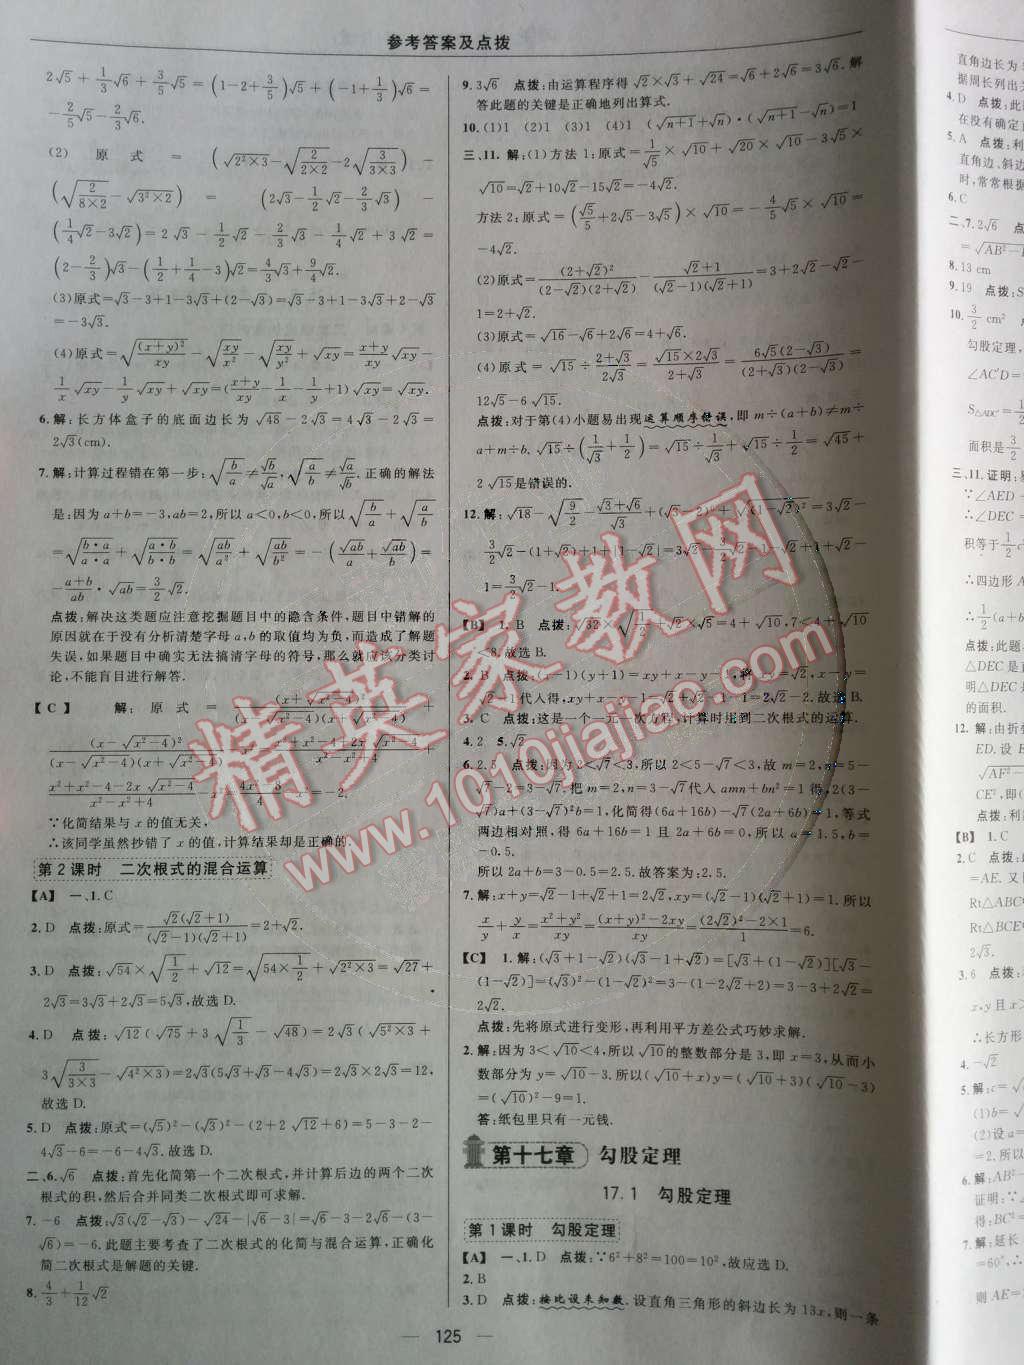 参考答案及点拨
2√5+1/3√6+3/5√5=(1-2+3/5)√5+(-1+1/3)√6=
-2/5√5-2/3√6.
(2) 原式=(√(2²×3)-√(2/(2×2))-2√(3/(3×3)))-
(√(2/(8×2))-√(3²×2))=(2√3-1/2√2-2/3√3)-
(1/4√2-3√2)=2√3-1/2√2-2/3√3-1/4√2+3√2=
(2-2/3)√3-(1/2+1/4-3)√2=4/3√3+9/4√2.
(3)原式=√3-3+1-3√3+(2-√3)=√3-3+1-3√3+2-√3
=-3√3.
(4)原式=√((x+y)²/xy)-√(xy/x²)-√(xy/y²)+√xy=(x+y)/xy √xy-
1/x √xy-1/y √xy+√xy=((x+y)/xy-1/x-1/y+1)√xy=√xy.
6.解:长方体盒子的底面边长为√48-2√3=4√3-2√3=
2√3(cm).
7.解:计算过程错在第一步:√(b/a)≠√b/a,√(a/b)≠√a/b.正确的解法
是:因为a+b=-3,ab=2,所以a<0,b<0,所以√(b/a)+√(a/b)
=√(b·a/a·a)+√(a·b/b·b)=√(ab/a²)+√(ab/b²)=-(√ab/a+√ab/b)=
-(a+b)/ab·√ab=3/2√2.
点拨:解决这类题应注意挖掘题目中的隐含条件,题目中错解的
原因就在于没有分析清楚字母a,b的取值均为负,而造成了解题
失误,如果题目中确实无法搞清字母的符号,那么就应该分类讨
论,不能盲目进行解答.
【C】 解:原式=(x+√(x²-4))²/((x+√(x²-4))(x-√(x²-4)))+
(x-√(x²-4))²/((x-√(x²-4))(x+√(x²-4)))
∵化简结果与x的值无关,
∴该同学虽然抄错了x的值,计算结果却是正确的.
第2课时 二次根式的混合运算
【A】 一、1.C
2.D 点拨:原式=√2(√2+1)/((√2-1)(√2+1))=2+√2.
3.D 点拨:√54×√(1/2)+√12=√(54×1/2)+√(2²×3)=√27+
2√3=3√3+2√3=5√3,故选D.
4.D 点拨:√12(√75+3√(1/3)-√48)=2√3(√(5²×3)+
3√(3/(3×3))-√(4²×3))=2√3(5√3+√3-4√3)=2√3×2√3=12,
故选D.
5.D 点拨:原式=(√5)²-(√3)²-(2+2√12+6)=5-3-2-
4√3-6=-6-4√3.故选D.
二、6.√6 点拨:首先化简第一个二次根式,并计算后边的两个二次
根式的积,然后合并同类二次根式即可求解.
7.-6 点拨:√3(√2-√3)-√24-|√6-3|=√6-3-2√6-(3-
√6)=-6.此题主要考查了二次根式的化简与混合运算,正确化
简二次根式是解题的关键.
8.4/3+1/12√2
9.3√6 点拨:由运算程序得√2×√3+√24=√6+2√6=3√6.解
答此题的关键是正确地列出算式.
10.(1)1 (2)1 (3)1 (4)1 (√(n+1)+√n)·(√(n+1)-√n)=1
三、11.解:(1)方法1:原式=1/√5×√10+√20×√10-3√5×
√10=√2+10√2-15√2=-4√2.
方法2:原式=(√5/5+2√5-3√5)×√10=-4/5√5×√10=
-4√2.
(2)原式=(2+√2)²/((2-√2)(2+√2))-(√2+1)/((√2-1)(√2+1))=3+2√2-√2-
1=2+√2.
(3)原式=√16-√6+2√6=4+√6.
(4)原式=√15÷(2+√3)/2√3=√15×2√3/(2+√3)=6√5(2-√3)/((2+√3)(2-√3))=
12√5-6√15.
点拨:对于第(4)小题易出现运算顺序错误,即m÷(a+b)≠m÷
a+m÷b.√15÷(1/√3+1/2)=√15÷1/√3+√15÷1/2=√45+
2√15是错误的.
12.解:√18-√(9/2)-(√3+√6)/√3+(√3-2)⁰+√(1-√2)²=3√2-
3/2√2-(1+√2)+1+|1-√2|=3√2-3/2√2-1-√2+1+√2-
1=3/2√2-1.
【B】 1.B 点拨:√32×√(1/2)+√2×√5=4+√10,7<4+√10
<8,故选B.
3.C 点拨:这是一个一元一次方程,计算时用到二次根式的运算.
4.2 5.√2
6.2.5 点拨:因为2<√7<3,所以2<5-√7<3,故m=2,n=5-
√7-2=3-√7.把m=2,n=3-√7代入amn+bn²=1得,2(3-
√7)a+(3-√7)²b=1,化简得(6a+16b)-√7(2a+6b)=1,等式
两边相对照,得6a+16b=1且2a+6b=0,所以a=1.5,b=
-0.5.
所以2a+b=3-0.5=2.5.故答案为:2.5.
7.解:x+y=√2-1+√2+1=2√2,xy=(√2-1)(√2+1)=1.所以
x/y+y/x=(x²+y²)/xy=((x+y)²-2xy)/xy=((2√2)²-2×1)/1=6.
【C】 1.解:(√3+1-√2)(√3-1+√2)=[√3+(1-√2)][√3-
(1-√2)]=(√3)²-(1-√2)²=3-(1-2√2+2)=3-3+2√2=
2√2.
点拨:先将原式进行变形,再利用平方差公式巧妙求解.
2.解:因为3<√10<4,所以√10的整数部分是3,即x=3,从而小
数部分为y=√10-3.所以(√10+x)y=(√10+3)(√10-3)=
(√10)²-9=1.
答:纸包里只有一元钱.
第十七章 勾股定理
17.1 勾股定理
第1课时 勾股定理
【A】 一、1.D 点拨:∵6²+8²=100=10²,故应选D.
2.B
3.D 点拨:按比设未知数.设直角三角形的斜边长为13x,则一条
125
精英家教网
www.1010jiajiao.com
直角边长为
据周长列出
4.D 点拨:此
在没有确定
5.A 点拨:利
直角边、斜边
时,常常根据
6.C
二、7.2√6
8.13 cm
9.19 点拨:S
10.3/2 cm²
勾股定理,
∠AC'D=
面积是3/2
三、11.证明:
∵∠AED=
∴∠DEC=
∴四边形A
点拨:此题
△DEC是
明△DEC是
的面积.
12.解:由折
ED.设E
CE²,即(
点拨:利
【B】 1.C
2.C 点拨:
=AE.又
Rt△ABC
Rt△BCE
2√3.
3.6 点拨:
x,y且x>
∴长方形
4.-√2
5.解:c=√
(1)b=√
(2)设a=
=2.所以
6.解:
证明:∵
得:BC²=
7.解:延长
=60°,∴
则AE=